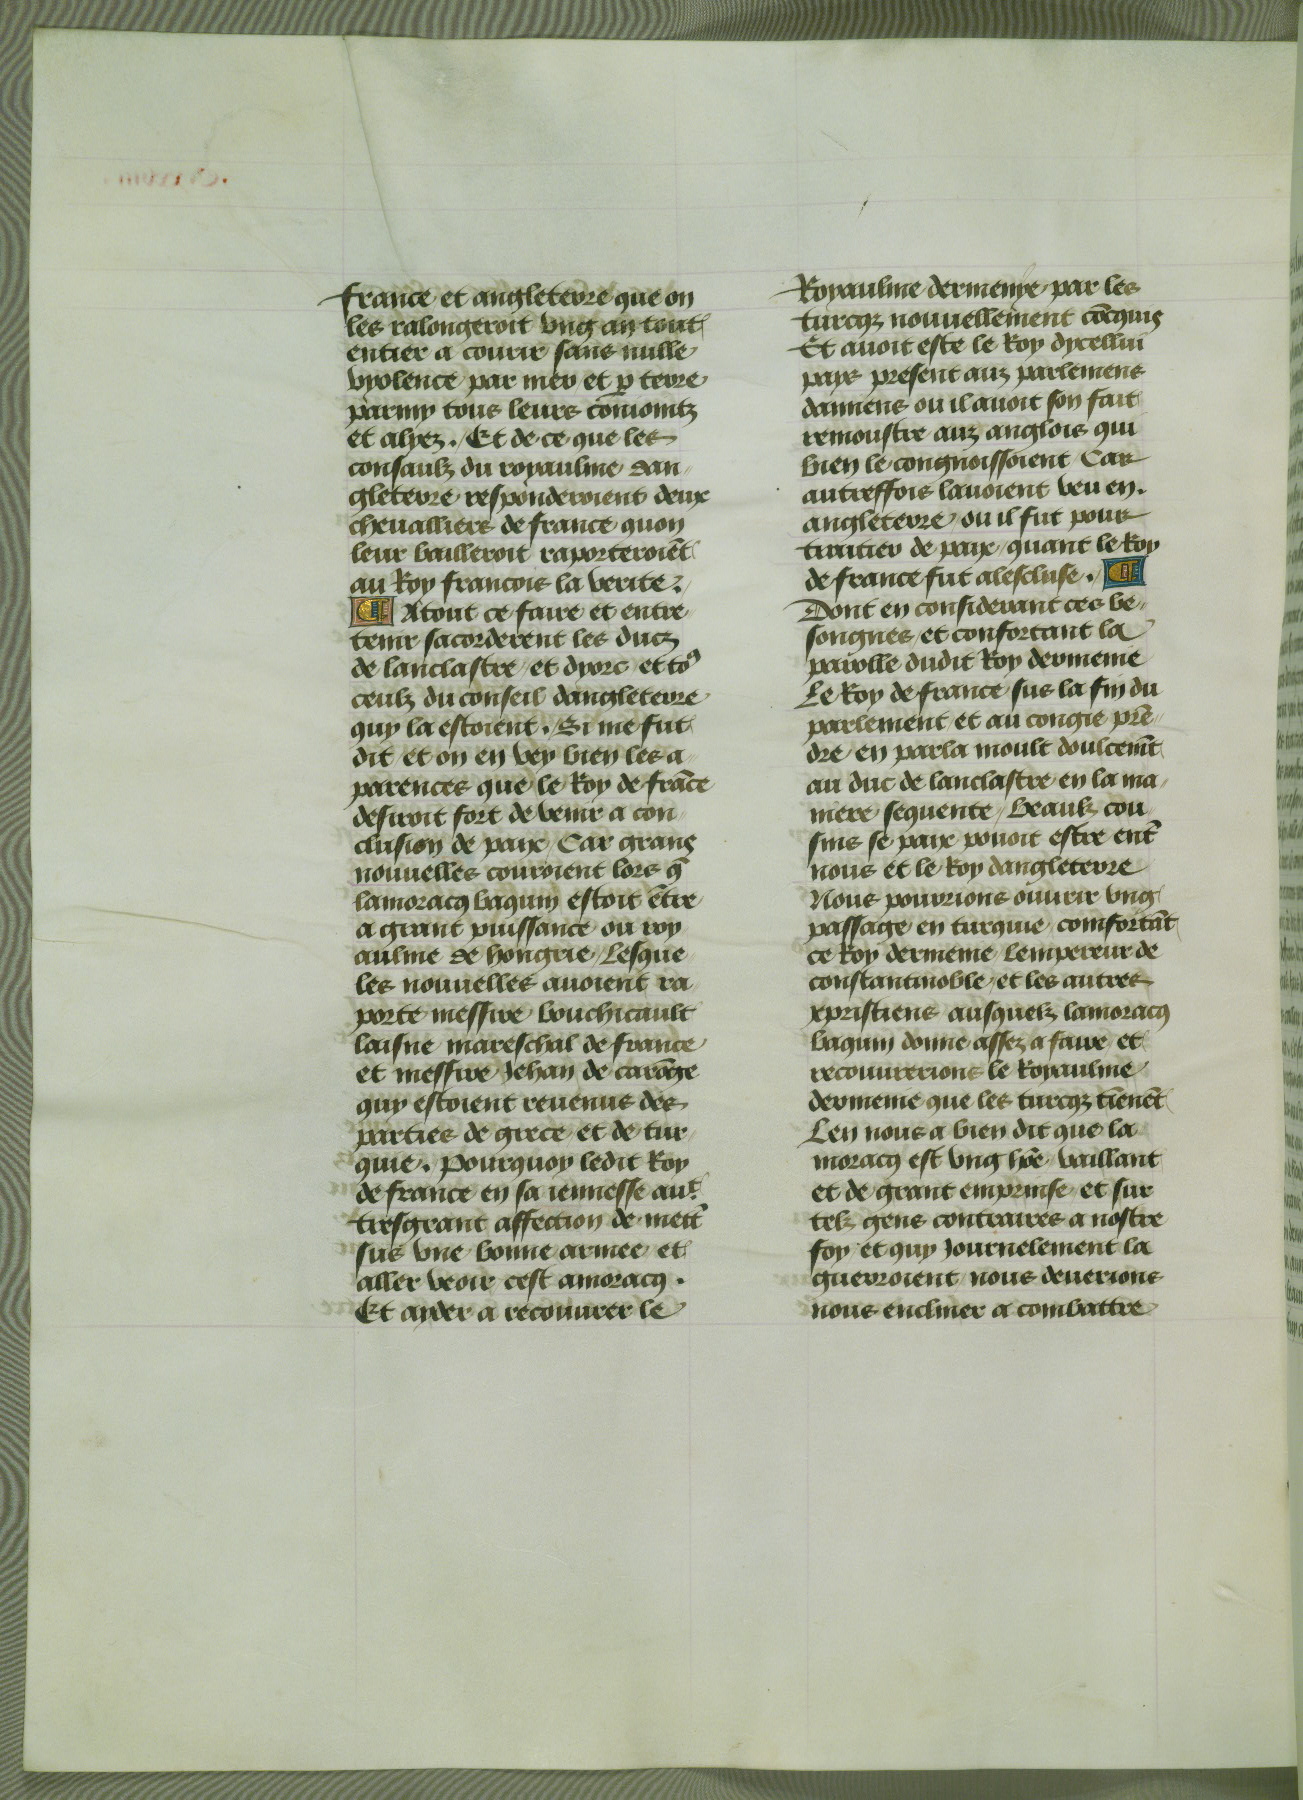 france et angleterre que on
les ralongeroit vng an tout
entier a courir sans nulle
vyolence par mer et ꝑ terre
parmy tous leurs coniointz
et alyez. Et de ce que les
consaulz du royaulme dan
gleterre responderoient deux
cheualliers de france quon
leur bailleroit raporteroiēt
au Roy francois la verite.
¶ Atout ce faire et entre
tenir sacorderent les ducz
de lanclastre et dyorc et toꝰ
ceulz du conseil dangleterre
quy la estoient. Si me fut
dit et on en vey bien les a
parences que le Roy de frāce
desiroit fort de venir a con
clusion de paix Car grans
nouuelles couroient lors q̄
lamoracq baquin estoit ētre
a grant puissance ou roy
aulme de hongrie Lesque
les nouuelles auoient ra
porte messire bouchicault
laisne mareschal de france
et messire Jehan de carōge
quy estoient reuenus des
parties de grece et de tur
quie. Pourquoy ledit Roy
de france en sa iennesse auͭ
tresgrant affection de mett̄
sus vne bonne armee et
aller veoir cest amoracq.
Et ayder a recouurer le
Royaulme dermenye par les
turcqz nouuellement cōcquis
Et auoit este le Roy dycellui
pays present auz parlemens
damiens ou il auoit son fait
remoustre auz anglois qui
bien le congnoissoient Car
autreffois lauoient veu en.
angleterre ou il fut pour
traitier de paix quant le Roy
de france fut alescluse. ¶
Dont en considerant ces be
songnes et confortant la
parolle dudit Roy dermenie
Le Roy de france sus la fin du
parlement et au congie prē
dre en parla moult doulcemt̄
au duc de lanclastre en la ma
niere sequente Beaulz cou
sins se paix pouoit estre ent̄
nous et le Roy dangleterre
Nous pourrions ouurir vng
passage en turquie comfortāt
ce Roy dermenie Lempereur de
constantinoble et les autres
xpristiens ausquelz lamoracq
baquin donne assez a faire et
recouurerions le Royaulme
dermenie que les turcqz tienēt
Len nous a bien dit que la
moracq est vng hōe vaillant
et de grant emprinse et sur
telz gens contraires a nostre
foy et quy Journelement la
guerroient nous deuerions
nous encliner a combattre